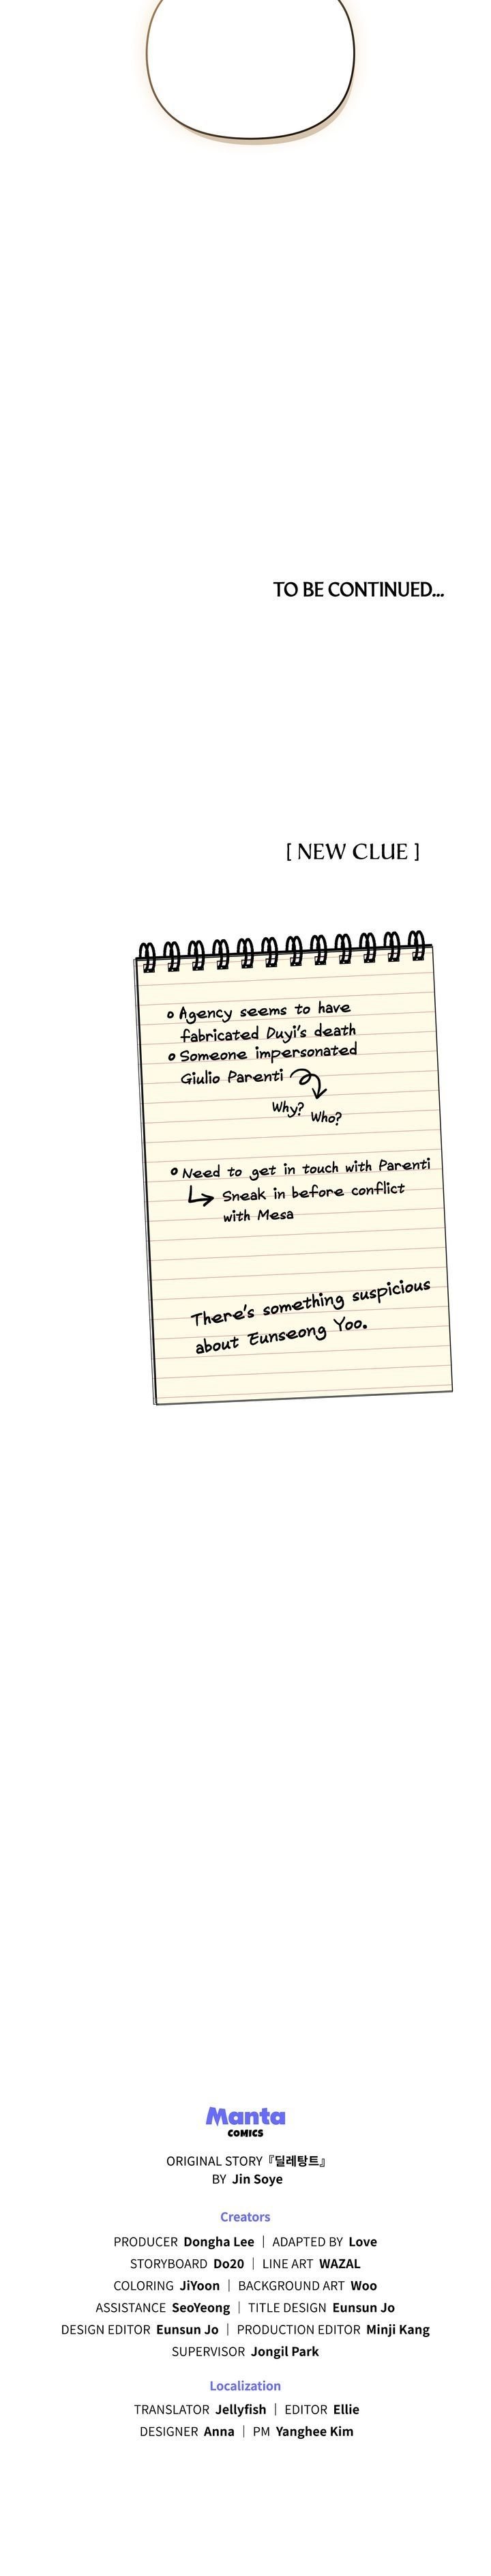 TO BE CONTINUED...
[ NEW CLUE ]
Agency seems to have
fabricated Duyi's death
Someone impersonated
Giulio Parenti
Why? Who?
Need to get in touch with Parenti
Sneak in before conflict
with Mesa
There's something suspicious
about Eunseong Yoo.
Manta
COMICS
ORIGINAL STORY『딜레탕트』
BY Jin Soye
Creators
PRODUCER Dongha Lee | ADAPTED BY Love
STORYBOARD Do20 | LINE ART WAZAL
COLORING JiYoon | BACKGROUND ART Woo
ASSISTANCE SeoYeong | TITLE DESIGN Eunsun Jo
DESIGN EDITOR Eunsun Jo | PRODUCTION EDITOR Minji Kang
SUPERVISOR Jongil Park
Localization
TRANSLATOR Jellyfish | EDITOR Ellie
DESIGNER Anna | PM Yanghee Kim